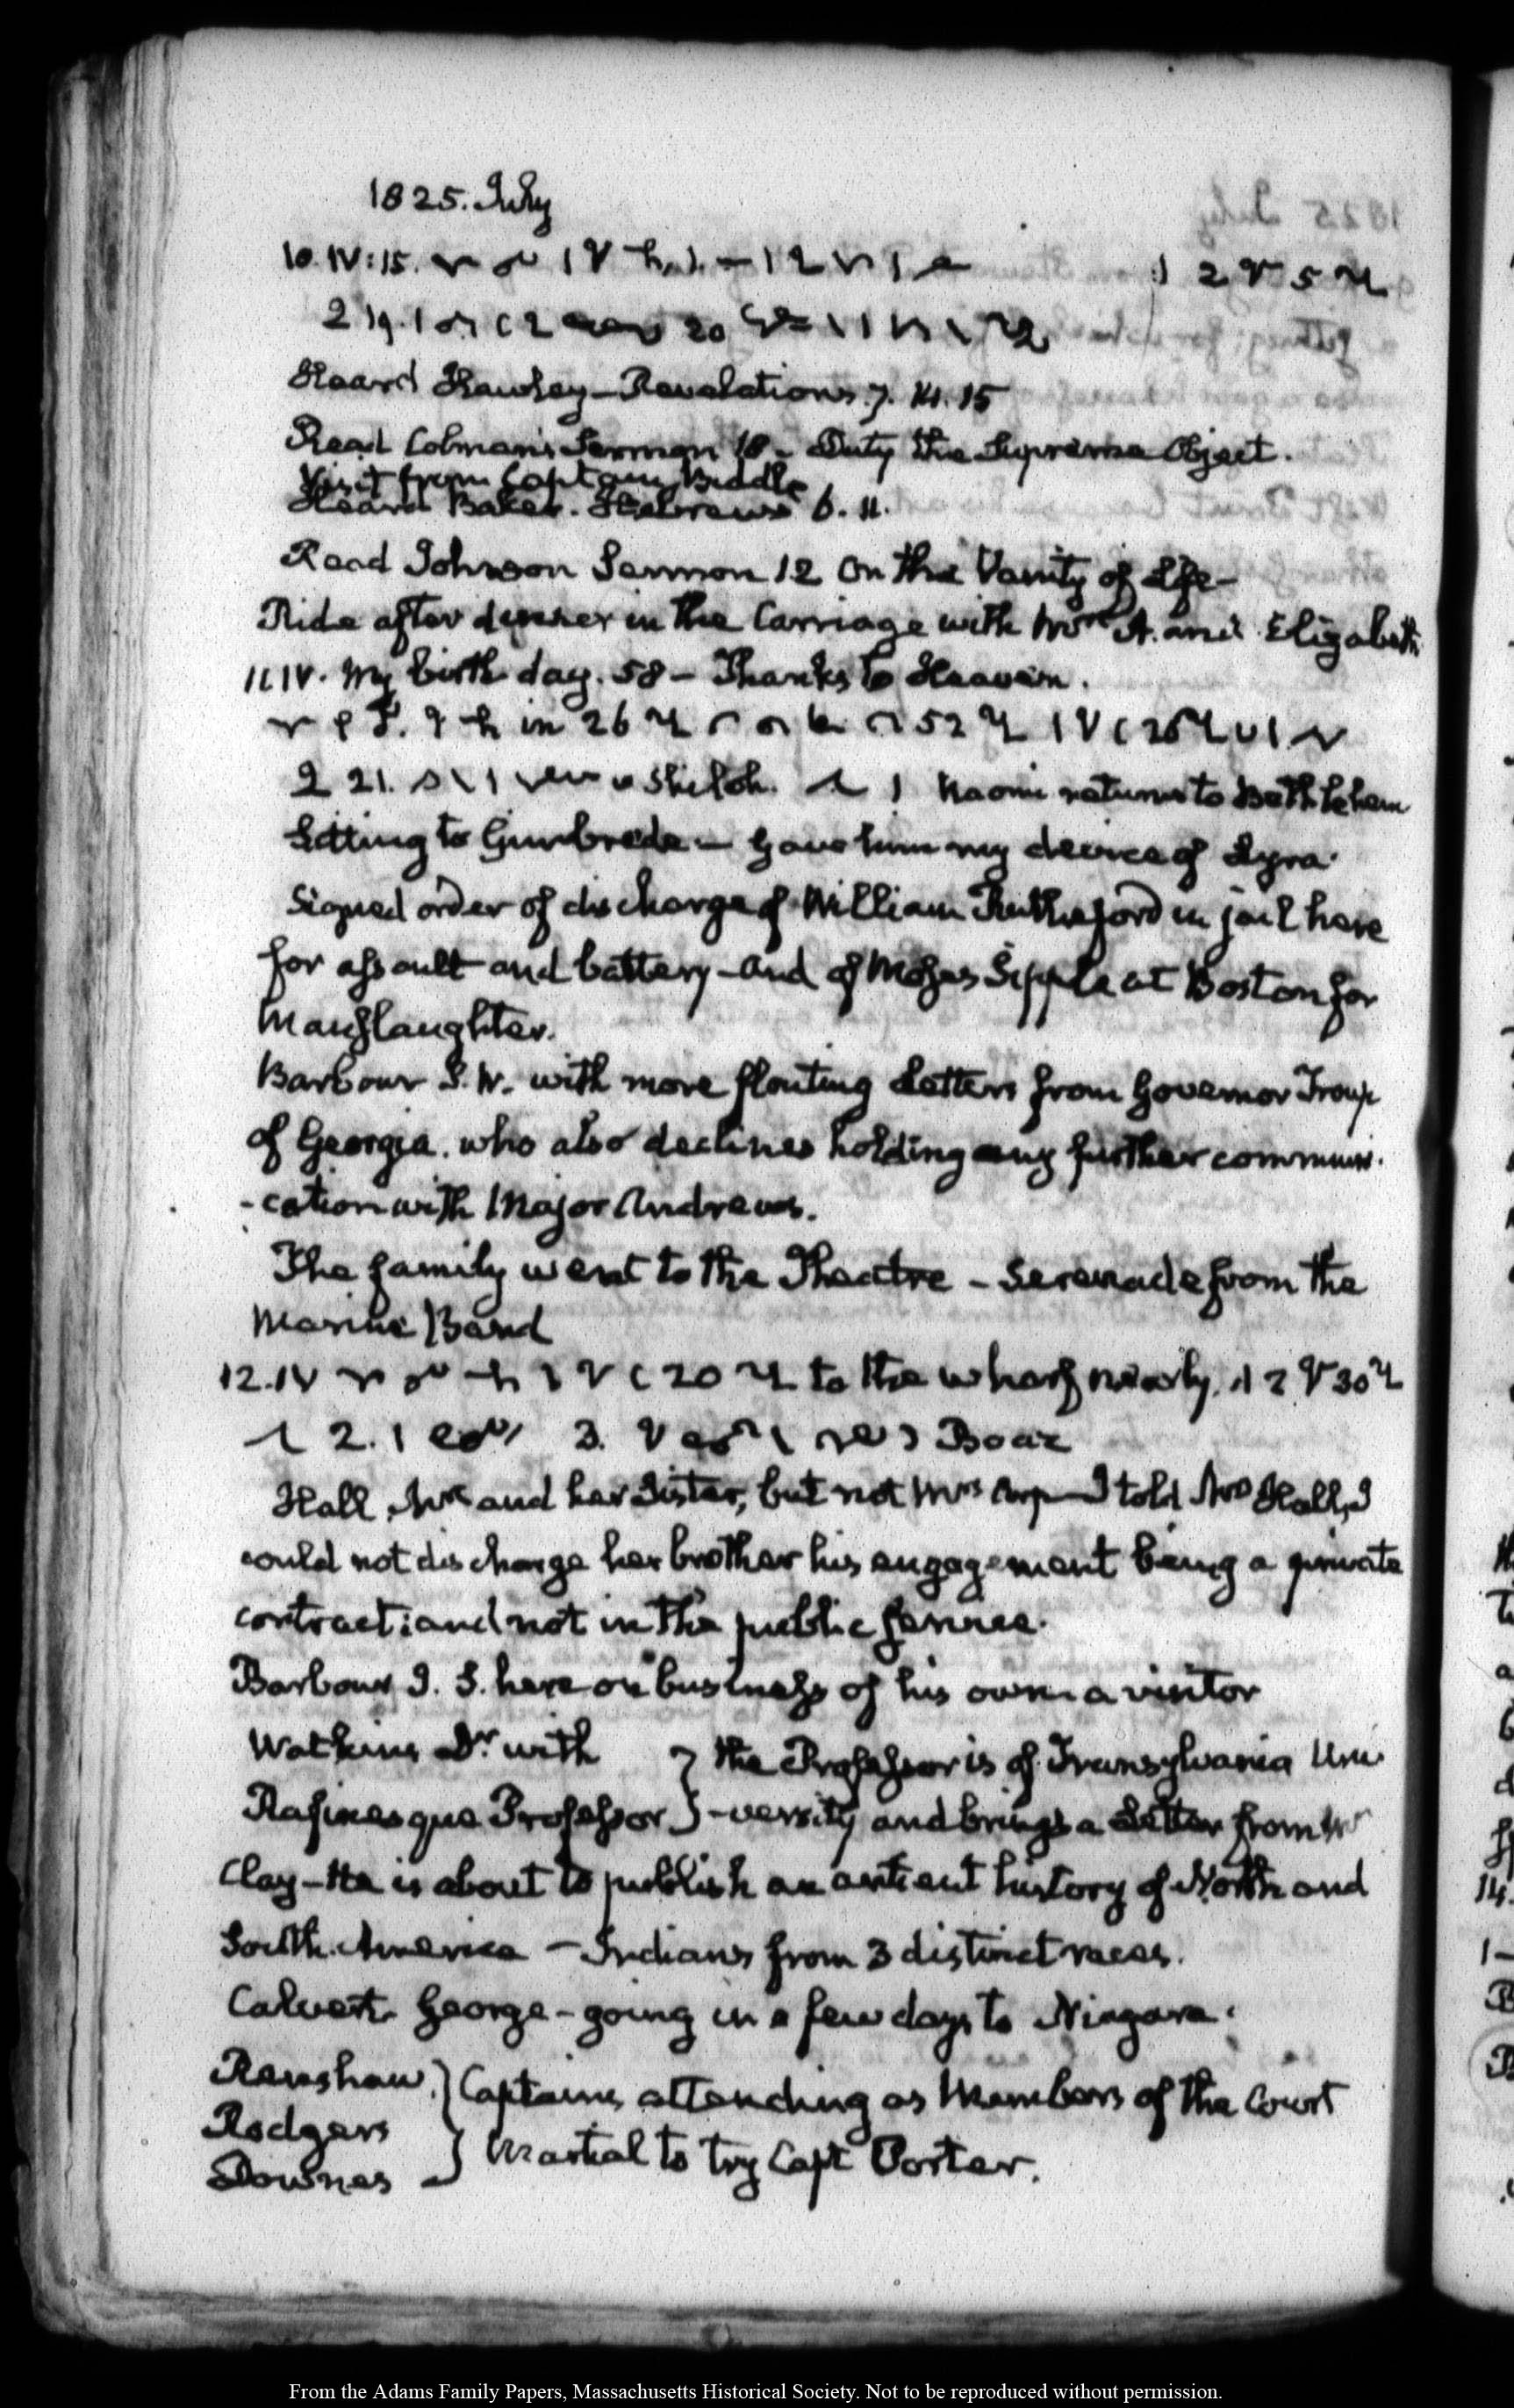 1825. July
10. IV:15.
2 19.
Heard Hawley – Revelations 7. 14.15
Read Colman's Sermon 18 – Duty the Supreme Object.
Visit from Captain Biddle
Heard Baker. Hebrews 6. 11.
Read Johnson Sermon 12 On the Vanity of Life –
Ride after dinner in the Carriage with Mrs A. and Elizabeth
11. IV. My birth day. 58 – Thanks to Heaven.
in 26 52
2 21. Shiloh. Naomi returns to Bethlehem
Sitting to Gimbrede – gave him my device of Lyra.
Signed order of discharge of William Rutherford in jail here
for assault and battery – and of Moses Sipple at Boston for
Manslaughter.
Barbour S. W. with more flouting Letters from Governor Troup
of Georgia. who also declines holding any further communi-
-cation with Major Andrews.
The family went to the Theatre – Serenade from the
Marine Band
12. IV 20 to the wharf nearly. 30
2. 3. Boaz
Hall, Mrs and her Sister, but not Mrs I told Mrs Hall, I
could not discharge her brother his engagement being a private
contract; and not in the public service.
Barbour J. S. here on business of his own: a visitor
Watkins Dr with } the Professor is of Transylvania Uni-
Rafinesque Professor } -versity and brings a Letter from Mr
Clay – He is about to publish an antient history of North and
South America – Indians from 3 distinct races.
Calvert George – going in a few days to Niagara.
Renshaw } Captains attending as Members of the Court
Rodgers
Downes } Martial to try Capt Porter.
From the Adams Family Papers, Massachusetts Historical Society. Not to be reproduced without permission.